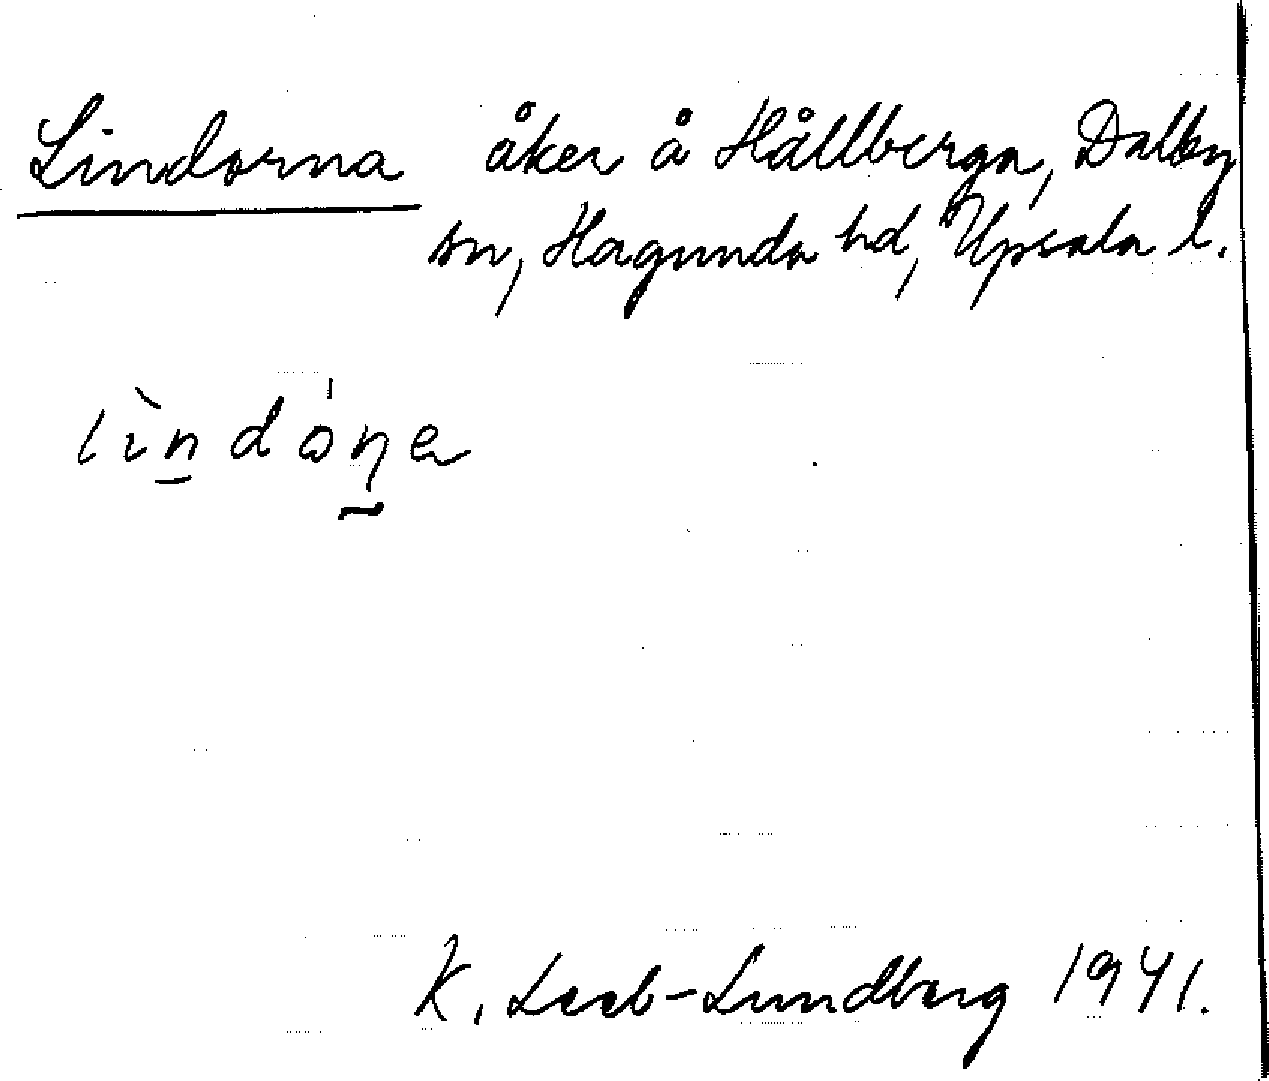 Lindorna åker å Hållberga, Dalby
sn, Hagunda hd, Upsala l.
lìndo̍ṇa
K. Leeb-Lundberg 1941.